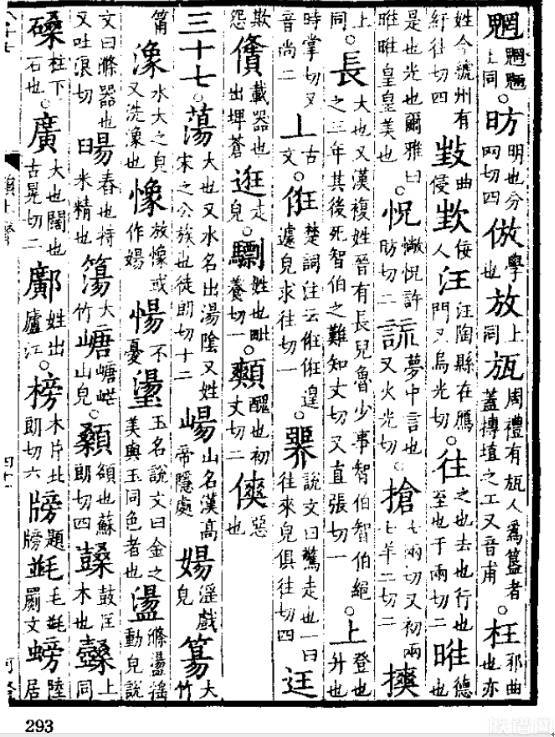 魍魍魎。上同昉明也分网切四倣學也放上同瓬周禮有瓬人爲簋者。蓋摶埴之工又音甫枉邪曲也亦
姓今虢州有紆往切四曲侵佞人汪汪陶縣在鴈門又烏光切。往之也去也行也至也于兩切二暀德也
是也光也爾雅曰暀暀皇皇美也怳懒怳許昉切二詤夢中言也又火光切。搶七兩切又初兩七羊二切二摤
上同。長大也又漢複姓晉有長兒魯少事智伯智伯絕之三年其後死智伯之難知丈切又直張切一。上登也升也
時掌切又音尚二上古文。俇楚詞注云俇俇遑遽皃求往切一。臩說文曰驚走也一曰往來皃俱往切四迋
欺怨載器也出埤蒼逛走皃姓也毗養切一醜也初丈切二傸惡也
三十七。蕩大也又水名出湯陰又姓宋之公族也徒朗切十二崵山名漢高帝隱處婸淫戲皃簜大竹
筩潒水大之皃又洗潒也像放像或作婸愓不憂璗玉名說文曰金之美與玉同色者也盪滌盪搖動皃說
文曰滌器也又吐浪切舂也持米精也大竹嵣山皃。顙額也蘇朗切四鼓匡木也上同
磉柱下石也。廣大也闊也古晃切二鄺姓出廬江。榜木片北朗切六牓題牓罽文螃陸居
293